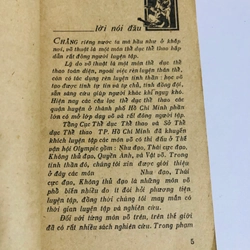 lời nói đầu
CHẲNG riêng nước ta mà hầu như ở khắp
nơi, võ thuật là một môn thể dục thể thao hấp
dẫn rất đông người luyện tập.
Lý do võ thuật là một môn thể dục thể
thao toàn diện, ngoài việc rèn luyện thân thể,
còn có tác dụng rèn luyện tinh thần: học võ
tạo được tính tự tin và tự chủ, tính đồng đội,
sẵn sàng cứu giúp người khác khi nguy khó.
Hiện nay các câu lạc bộ thể dục thể thao các
quận huyện ở thành phố Hồ Chí Minh phần
lớn có dạy võ và rất đông người luyện tập.
Tổng Cục Thể dục Thể thao và Sở Thể
dục Thể thao TP. Hồ Chí Minh đã khuyến
khích luyện tập các môn võ có thi đấu ở Thế
vận hội Olympic gồm: Nhu đạo, Thái cực đạo,
Không thủ đạo, Quyền Anh, và Vật võ. Trong
tinh thần đó, chúng tôi xin được giới thiệu
ở đây các môn Nhu đạo, Thái
cực đạo, Không thủ đạo là những môn võ
phổ biến nhiều do ít đòi hỏi phương tiện
luyện tập, đồng thời chúng tôi may mắn có
thời gian luyện tập và nghiên cứu.
Đối với từng môn võ trên, trên thế giới
đã có rất nhiều sách nghiên cứu. Trong phạm
5